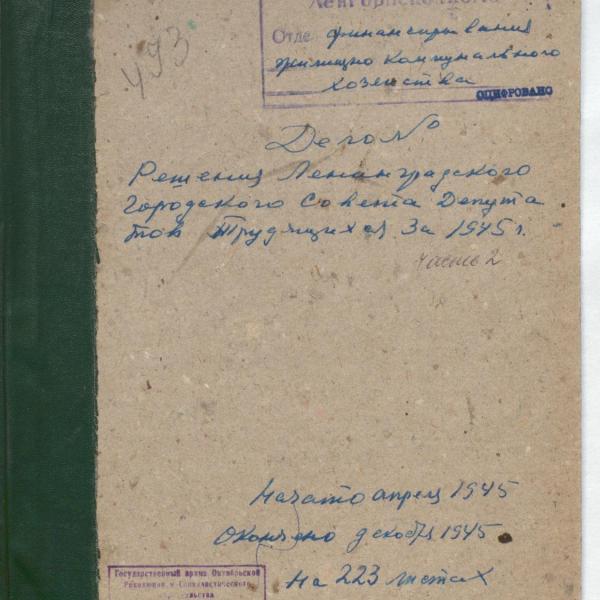 Ленгорисполкома
Отдел финансирования
жилищно коммунального
хозяйства
ОЦИФРОВАНО
493
Дело №
Решения Ленинградского
Городского Совета Депута
тов Трудящихся За 1945 г.
часть 2
Начато апрель 1945
Окончено декабря 1945
На 223 листах
Государственный архив Октябрьской
Революции и Социалистического